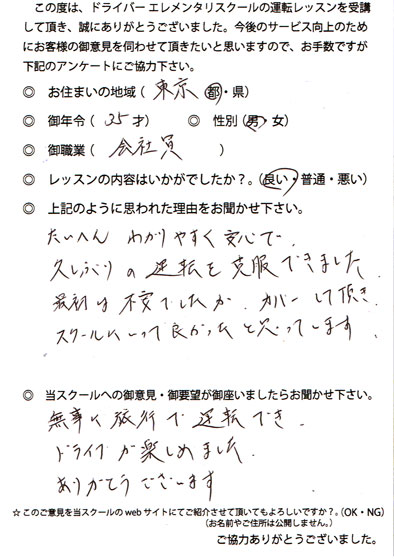 この度は、ドライバー エレメンタリスクールの運転レッスンを受講
して頂き、誠にありがとうございました。今後のサービス向上のため
にお客様の御意見を伺わせて頂きたいと思いますので、お手数ですが
下記のアンケートにご協力下さい。
◎ お住まいの地域（ 東京 都・県）
◎ 御年令（ 35才） ◎ 性別（男・女）
◎ 御職業（ 会社員 ）
◎ レッスンの内容はいかがでしたか？。（良い・普通・悪い）
◎ 上記のように思われた理由をお聞かせ下さい。
たいへん わかりやすく 安心で、
久しぶりの 逆転を 克服できました。
最初は 不安でしたが、カバーして頂き
スクールにいって良かったと思っています
◎ 当スクールへの御意見・御要望が御座いましたらお聞かせ下さい。
無事に旅行で 逆転でき、
ドライブが楽しめました。
ありがとうございます
☆このご意見を当スクールの web サイトにてご紹介させて頂いてもよろしいですか？。（OK・NG）
（お名前やご住所は公開しません。）
ご協力ありがとうございました。